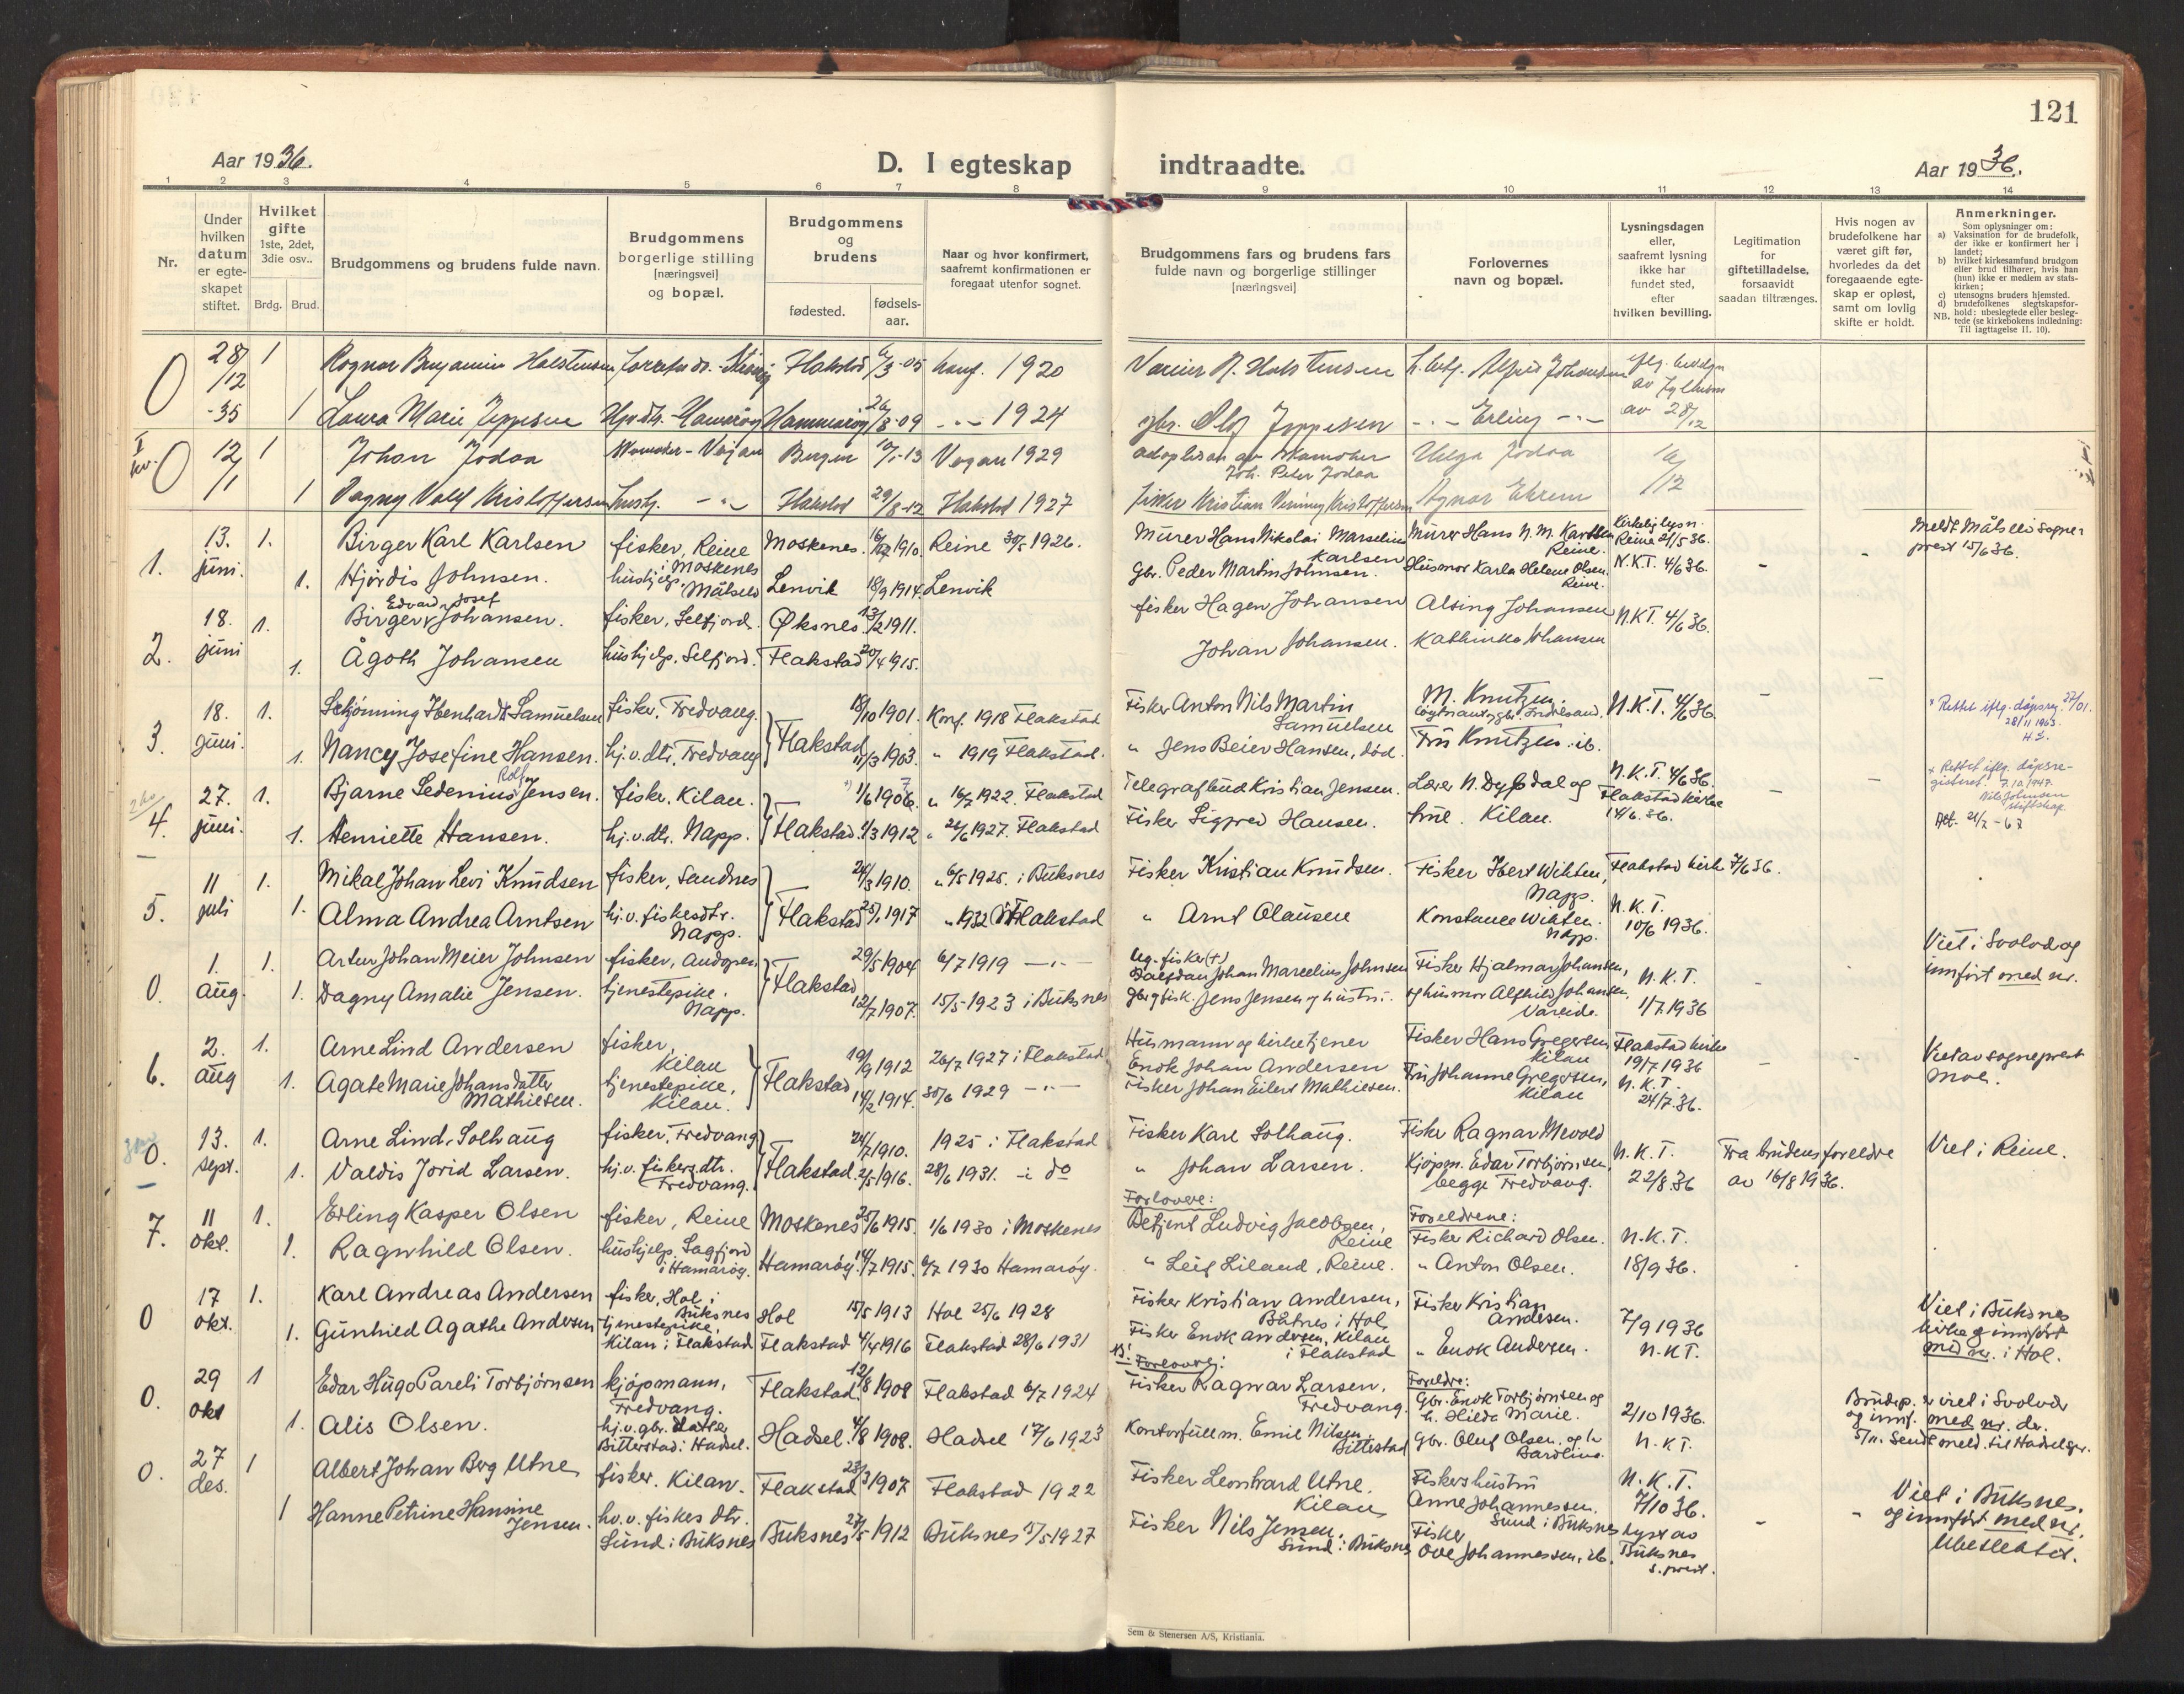 121
Aar 1936.
D. I egteskap indtraadte.
Aar 1936.
1 2 3 4 5 6 7 8 9 10 11 12 13 14
Nr.
Under hvilken datum er egteskapet stiftet.
Hvilket gifte
1ste, 2det, 3die osv..
Brdg. Brud.
Brudgommens og brudens fulde navn.
Brudgommens borgerlige stilling [næringsvei] og bopæl.
Brudgommens og brudens
fødested.
fødsels-aar.
Naar og hvor konfirmert, saafremt konfirmationen er foregaat utenfor sognet.
Brudgommens fars og brudens fars fulde navn og borgerlige stillinger [næringsvei]
Forlovernes navn og bopæl.
Lysningsdagen eller, saafremt lysning ikke har fundet sted, efter hvilken bevilling.
Legitimation for giftetilladelse, forsaavidt saadan tiltrænges.
Hvis nogen av brudefolkene har været gift før, hvorledes da det foregaaende egteskap er opløst, samt om lovlig skifte er holdt.
Anmerkninger.
Som oplysninger om:
a) Vaksination for de brudefolk, der ikke er konfirmert her i landet;
b) hvilket kirkesamfund brudgom eller brud tilhører, hvis han (hun) ikke er medlem av statskirken;
c) utensogns bruders hjemsted.
d) brudefolkenes slegtskapsforhold: ubeslegtede eller beslegtede (se kirkebokens indledning: Til iagttagelse II. 10).
NB.
0 28/12 -35 1 Ragnar Benjamin Halstensen Flakstad 6/3-05 konf. 1920
1 Laura Marie Jeppesen Hammarøy 26/8-09 -"- 1924 gbr. Olaf Jeppesen -"- Erling -"-
0 12/1 1 Johan Jodaa Bergen 1-13 Vaagan 1929 Joh. Peter Jodaa Helga Jodaa
1 Dagny Valf Kristoffersen husbj. -"- Flakstad 29/8-12 Flakstad 1927 fisker Kristian Kristoffersen Agnar
1. 13. juni. 1. Birger Karl Karlsen fisker, Reine i Moskenes Moskenes. 1910. Reine 30/5 1926. Murer Hans Nikolai Marselius Karlsen Murer Hans N. M. Karlsen Reine. Kirkelig lysn. Reine 21/5 36. Meldt Målselv sogneprest 15/6 36.
1. Hjørdis Johnsen. hushjelp. Målselv Lenvik 18/9 1914. Lenvik Gbr. Peder Martin Johnsen. Husmor Karla Helene Olsen. Reine. N.K.T. 4/6 36.
2. 18. juni 1. Birger Edvard Josef Johansen. fisker, Selfjord. Øksnes. 13/2 1911. fisker Hagen Johansen Alsing Johansen N.K.T. 4/6 36.
1. Ågoth Johansen hushjelp. Selfjord. Flakstad 20/4 1915. Johan Johansen. Kathinka Johansen
3. 18. juni. 1. Schjønning Ibenhardt Samuelsen fisker. Fredvang. 18/10 1901. Konf. 1918 Flakstad Fisker Anton Nils Martin Samuelsen M. Knutzen. N.K.T. 4/6 36. Rettet iflg. dåpsreg. 28/11 1963.
1. Nancy Josefine Hansen. hj.v.dtr. Fredvang Flakstad 11/3 1903. " 1919 Flakstad. " Jens Beier Hansen, død. Fru Knutzen. ib.
4. 27. juni. 1. Bjarne Sedenius Rolf Jensen. fisker. Kilan. 1/6 1906. 7 " 16/7 1922. Flakstad Telegrafbud Kristian Jensen. Lærer N. Dyfsdal og N.K.T. 4/6 36. Flakstad kirke 14/6. 36. Rettet iflg. dåpsregisteret. 7.10.1947.
1. Henriette Hansen. hj.v.dtr. Napp. Flakstad. 1/3 1912 " 26/6 1927. Flakstad Fisker Sigfred Hansen. frue. Kilan. Att. 21/2-67
5. 11 juli 1. Mikal Johan Levi Knudsen fisker, Sandnes 24/3 1910. " 6/5 1925. i Buksnes Fisker Kristian Knudsen. Fisker Ibert Wikten, Napp. Flakstad kirke 7/6 36.
1. Alma Andrea Arntsen hj.v. fiskesdtr. Napp. Flakstad 25/1 1917 " 1932 Flakstad " Arnt Olausen Konstance Wikten. Napp. N.K.T. 10/6 1936.
0. 1. aug. 1. Artur Johan Meier Johnsen fisker, Andopen 29/5 1904 6/7 1919 -"- Halfdan Johan Marcelius Johnsen Fisker Hjalmar Johansen, N.K.T. Viet i Svolvær og innført med nr.
1. Dagny Amalie Jensen. tjenestepike. Napp. Flakstad 12/7 1907. 15/5-1923 i Buksnes Jens Jensen og hustru. og husmor Alfhild Johansen, Vareide. 1/7 1936
6. 2. aug 1. Arne Lind Andersen fisker, Kilan 19/9 1912 26/7 1927 i Flakstad Husmann og kirketjener Enok Johan Andersen Fisker Hans Gregersen Kilan Flakstad kirke 19/7 1936 Viet av sogneprest Moe.
1. Agate Marie Johansdatter Mathiesen. tjenestepike, Kilan. Flakstad 14/2 1914. 30/6 1929 -"- Fisker Johan Eilert Mathiesen. Fru Johanne Gregersen, Kilan N.K.T. 24/7. 36.
0. 13. sept. 1. Arne Lind. Solhaug fisker, Fredvang 24/7 1910. 1925 i Flakstad Fisker Karl Solhaug. Fisker Ragnar Mevold N.K.T. Fra brudens foreldre av 16/8 1936. Viet i Reine.
1. Valdis Jorid Larsen. hj.v. fiskers dtr. Fredvang. Flakstad. 21/5 1916. 28/6 1931. i do " Johan Larsen. Kjøpm. Edar Torbjørnsen, begge Fredvang. 22/8. 36
7. 11 okt. 1. Erling Kasper Olsen fisker, Reine Moskenes 25/6 1915 1/6 1930 i Moskenes Forlovere: Betjent Ludvig Jacobsen, Reine Foreldrene: Fisker Richard Olsen. N.K.T.
1. Ragnhild Olsen. hushjelp. Sagfjord i Hamarøy. Hamarøy. 14/7 1915. 6/7 1930 Hamarøy. " Leif Liland, Reine. " Anton Olsen. 18/9 36.
0 17 okt. 1. Karl Andreas Andersen fisker, Hol i Buksnes Hol 15/5 1913 Hol 25/6 1928 Fisker Kristian Andersen, i Hol Fisker Kristian Andersen. 7/9 1936 Viet i Buksnes kirke og innført med nr. i Hol.
1. Gunhild Agathe Andersen tjenestepike, Kilan i Flakstad Flakstad 4/4 1916 Flakstad 28/6 1931 Fisker Enok Andersen, Kilan i Flakstad " Enok Andersen. N.K.T.
0. 29 okt 1 Edar Hugo Pareli Torbjørnsen kjøpmann, Fredvang. Flakstad. 12/8 1908 Flakstad 6/7 1924 Forlovere: Fisker Ragnar Larsen. Fredvang. Foreldre: Gbr. Enok Torbjørnsen og h. Hilda Marie. 2/10 1936. Brudep. er viet i Svolvær og innf. med nr. der.
1. Alis Olsen. hj.v. gbr. datter Bitterstad i Hadsel. Hadsel. 4/8 1908. Hadsel 17/6 1923 Kontorfullm. Emil Nilsen. Bitterstad gbr. Oluf Olsen. og h. N.K.T. 5/11. Sendt meld. til Hadsel spr.
0. 27 des. 1 Albert Johan Berg Utne fisker. Kilan. Flakstad 23/3 1907 Flakstad 1922 Fisker Leonhard Utne. Kilan Fiskers hustru Anne Johannessen. Sund i Buksnes N.K.T. 7/10 36. Viet i Buksnes. og innført med nr. Ubeslektet.
1 Hanne Petrine Hansine Jensen. hv.v. fiskes dtr. Sund i Buksnes Buksnes 27/5 1912 Buksnes 15/5 1927 Fisker Nils Jensen. Sund i Buksnes Fisker Ove Johannessen, ib. Lyst av Buksnes s. prest.
Sem & Stenersen A/S, Kristiania.